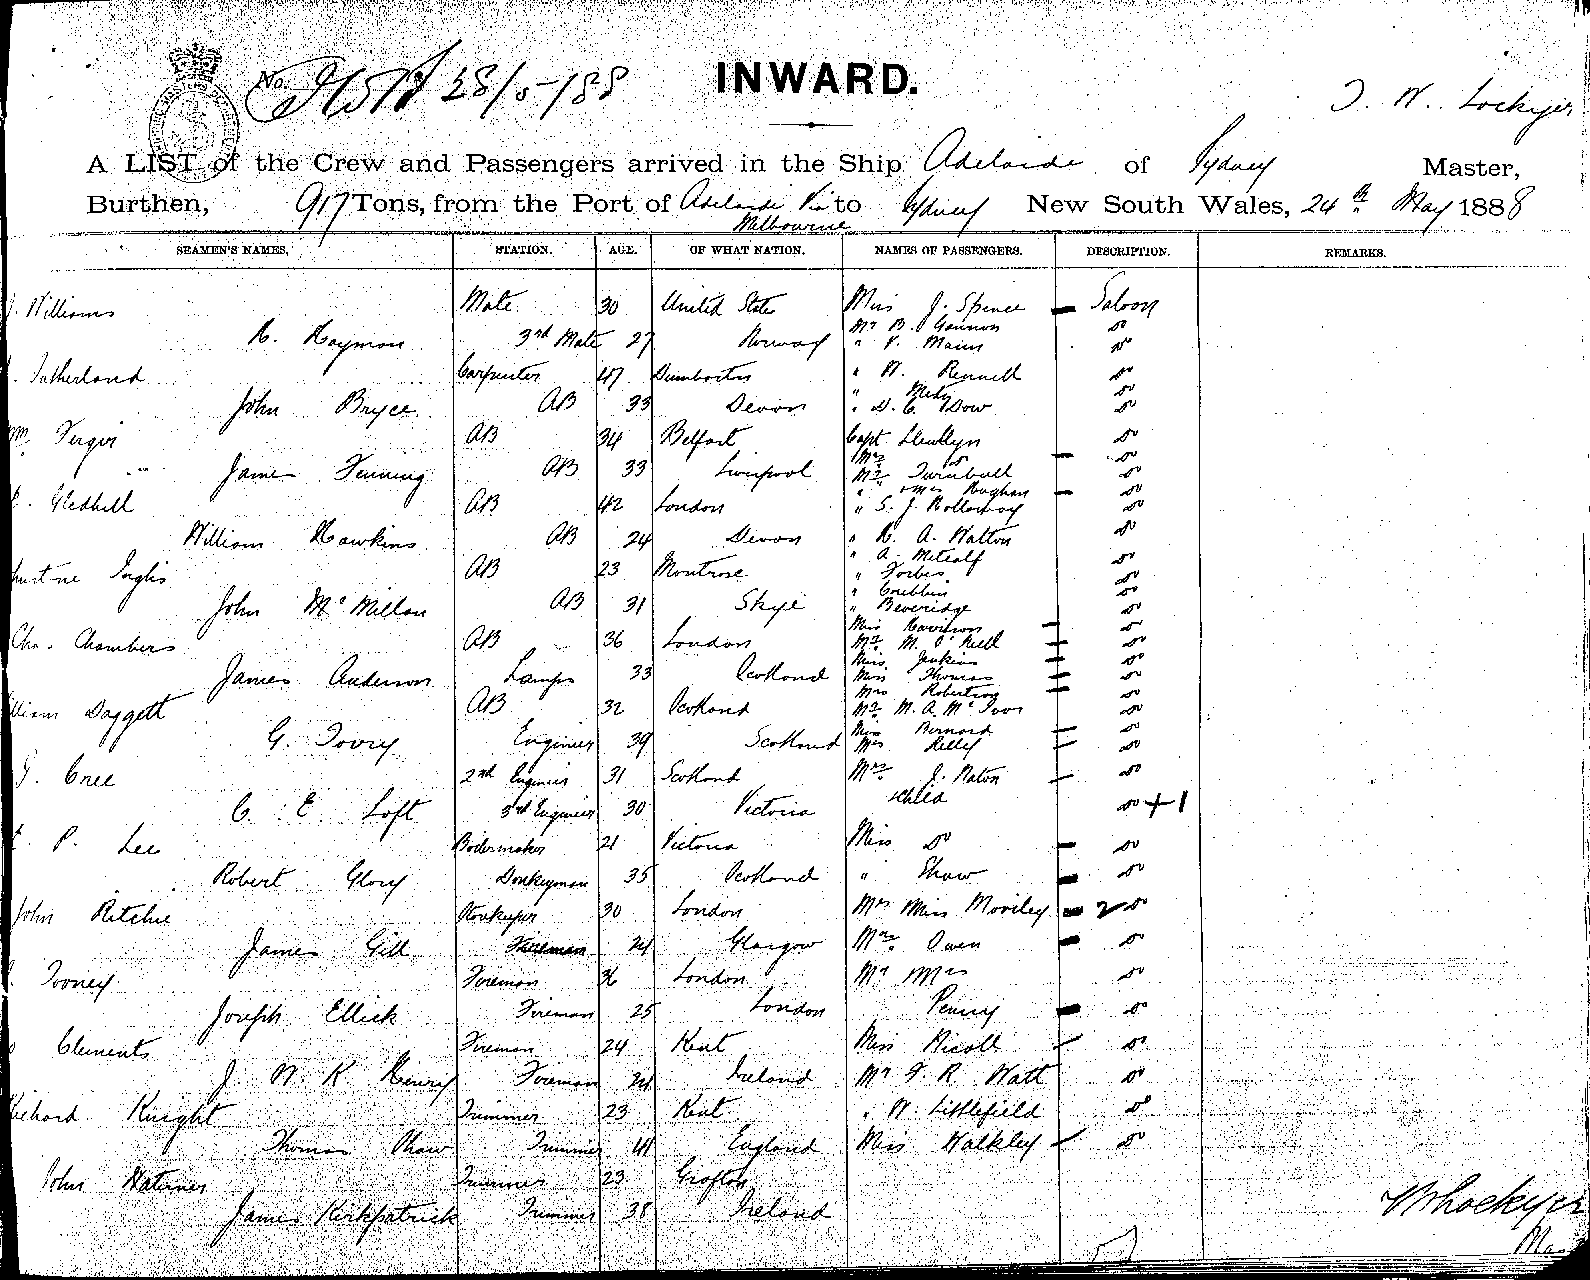 No. 28/5/88 INWARD.
T. W. Lockyer
A LIST of the Crew and Passengers arrived in the Ship Adelaide of Sydney Master,
Burthen, 917 Tons, from the Port of Adelaide Via to Sydney New South Wales, 24th May 1888
Melbourne
SEAMEN'S NAMES. STATION. AGE. OF WHAT NATION. NAMES OF PASSENGERS. DESCRIPTION. REMARKS.
Williams Mate 30 United States Miss J. Spence Saloon
Mr B. Gannon do
3rd Mate 27 Norway " V. Main do
Sutherland Carpenter 47 " W. Rennell do
do
John Bryce AB 33 Devon " D. C. Dow do
AB 34 Belfast Capt Llewllyn do
Mrs do do
James AB 33 Liverpool Mr Turnbull do
do
Gledhill AB 42 London " S. J. Holloway do
William Hawkins AB 24 Devon " R. A. Walton do
" A. Metcalf do
Inglis AB 23 Montrose " Forbes do
" Cribbin do
John McMillan AB 31 Skye " Beveridge do
Miss Harrison do
Chambers AB 36 London do
Miss Jenkins do
James Anderson Lamps 33 Scotland Miss Thomas do
do
Daggett AB 32 Scotland do
Miss Bernard do
Engineer 39 Scotland do
Cree 2nd Engineer 31 Scotland Mrs do
C. E. Loft 3rd Engineer 30 Victoria child do +1
P. Lee Boilermaker 21 Victoria Miss do do
Robert Glory Donkeyman 35 Scotland " Shaw do
John Ritchie Storekeeper 30 London Mrs Miss 2 do
James Gill Fireman 24 Glasgow Mrs Owen do
Fireman 36 London Mr Mrs do
Joseph Ellick Fireman 25 London Penny do
Clements Fireman 24 Kent Miss Nicoll do
J. W. K Henry Fireman 24 Ireland Mr F R Watt do
Knight Trimmer 23 Kent " W Littlefield do
Thomas Shaw Trimmer 41 England Miss Walkley do
John Trimmer 23 Grafton
James Kirkpatrick Trimmer 38 Ireland
Lockyer